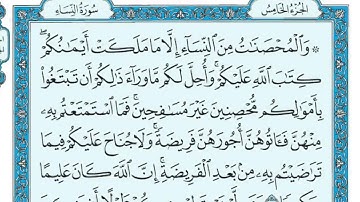 الجزء الخامس
سورة النساء
۞ وَالْمُحْصَنَٰتُ مِنَ النِّسَآءِ إِلَّا مَا مَلَكَتْ أَيْمَٰنُكُمْ
كِتَٰبَ اللَّهِ عَلَيْكُمْ وَأُحِلَّ لَكُم مَّا وَرَآءَ ذَٰلِكُمْ أَن تَبْتَغُوا۟
بِأَمْوَٰلِكُم مُّحْصِنِينَ غَيْرَ مُسَٰفِحِينَ فَمَا اسْتَمْتَعْتُم بِهِۦ
مِنْهُنَّ فَـَٔاتُوهُنَّ أُجُورَهُنَّ فَرِيضَةً وَلَا جُنَاحَ عَلَيْكُمْ فِيمَا
تَرَٰضَيْتُم بِهِۦ مِنۢ بَعْدِ الْفَرِيضَةِ إِنَّ اللَّهَ كَانَ عَلِيمًا